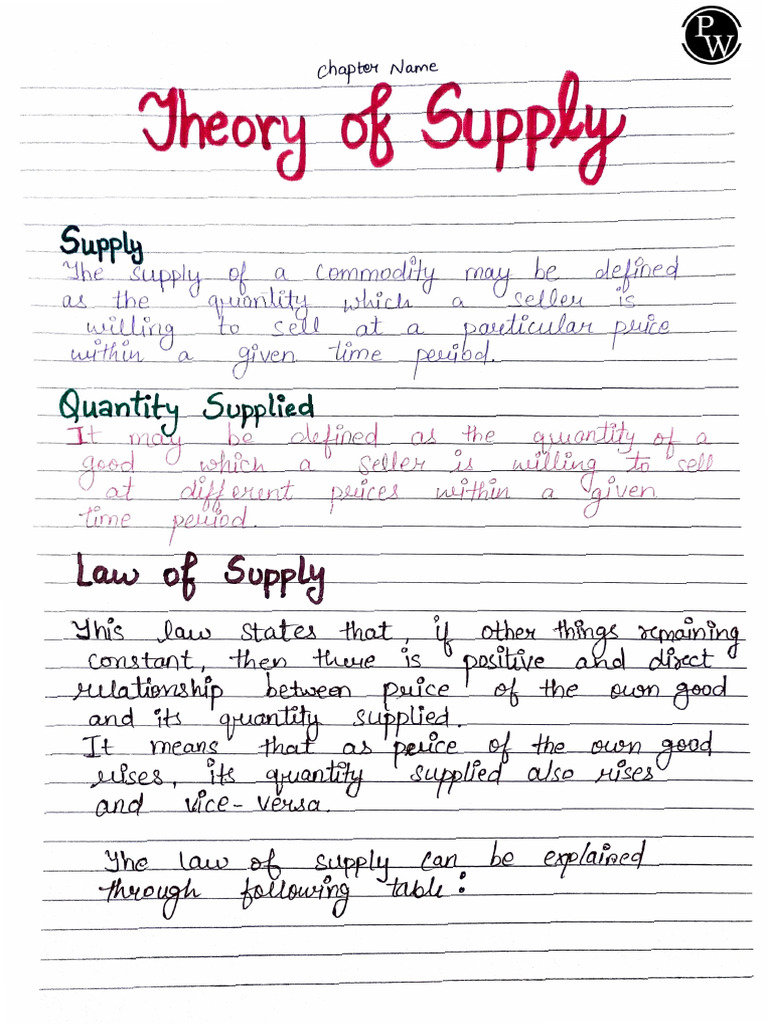 PW
Chapter Name
Theory of Supply
Supply
The supply of a commodity may be defined
as the quantity which a seller is
willing to sell at a particular price
within a given time period.
Quantity Supplied
It may be defined as the quantity of a
good which a seller is willing to sell
at different prices within a given
time period.
Law of Supply
This law states that, if other things remaining
constant, then there is positive and direct
relationship between price of the own good
and its quantity supplied.
It means that as price of the own good
rises, its quantity supplied also rises
and vice-versa.
The law of supply can be explained
through following table: